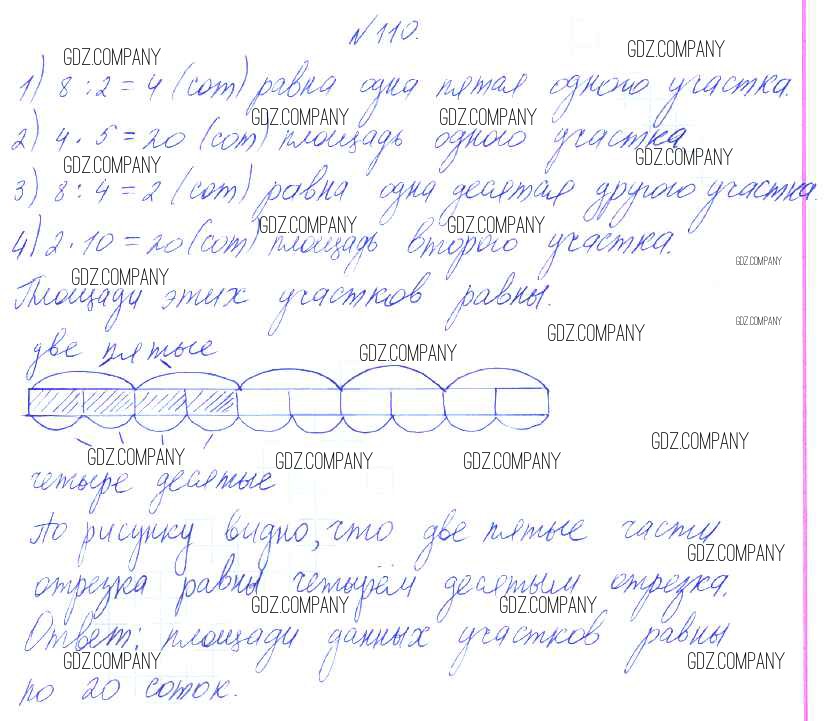 №110.
GDZ.COMPANY GDZ.COMPANY
1) 8 : 2 = 4 (сот) равна одна пятая одного участка.
GDZ.COMPANY GDZ.COMPANY
2) 4 · 5 = 20 (сот) площадь одного участка
GDZ.COMPANY GDZ.COMPANY
3) 8 : 4 = 2 (сот) равна одна десятая другого участка.
GDZ.COMPANY GDZ.COMPANY
4) 2 · 10 = 20 (сот) площадь второго участка.
GDZ.COMPANY
GDZ.COMPANY
Площади этих участков равны.
GDZ.COMPANY
GDZ.COMPANY
две пятые
GDZ.COMPANY
GDZ.COMPANY
GDZ.COMPANY GDZ.COMPANY GDZ.COMPANY
четыре десятые
По рисунку видно, что две пятые части
GDZ.COMPANY
отрезка равны четырём десятым отрезка.
GDZ.COMPANY GDZ.COMPANY
Ответ: площади данных участков равны
GDZ.COMPANY GDZ.COMPANY
по 20 соток.